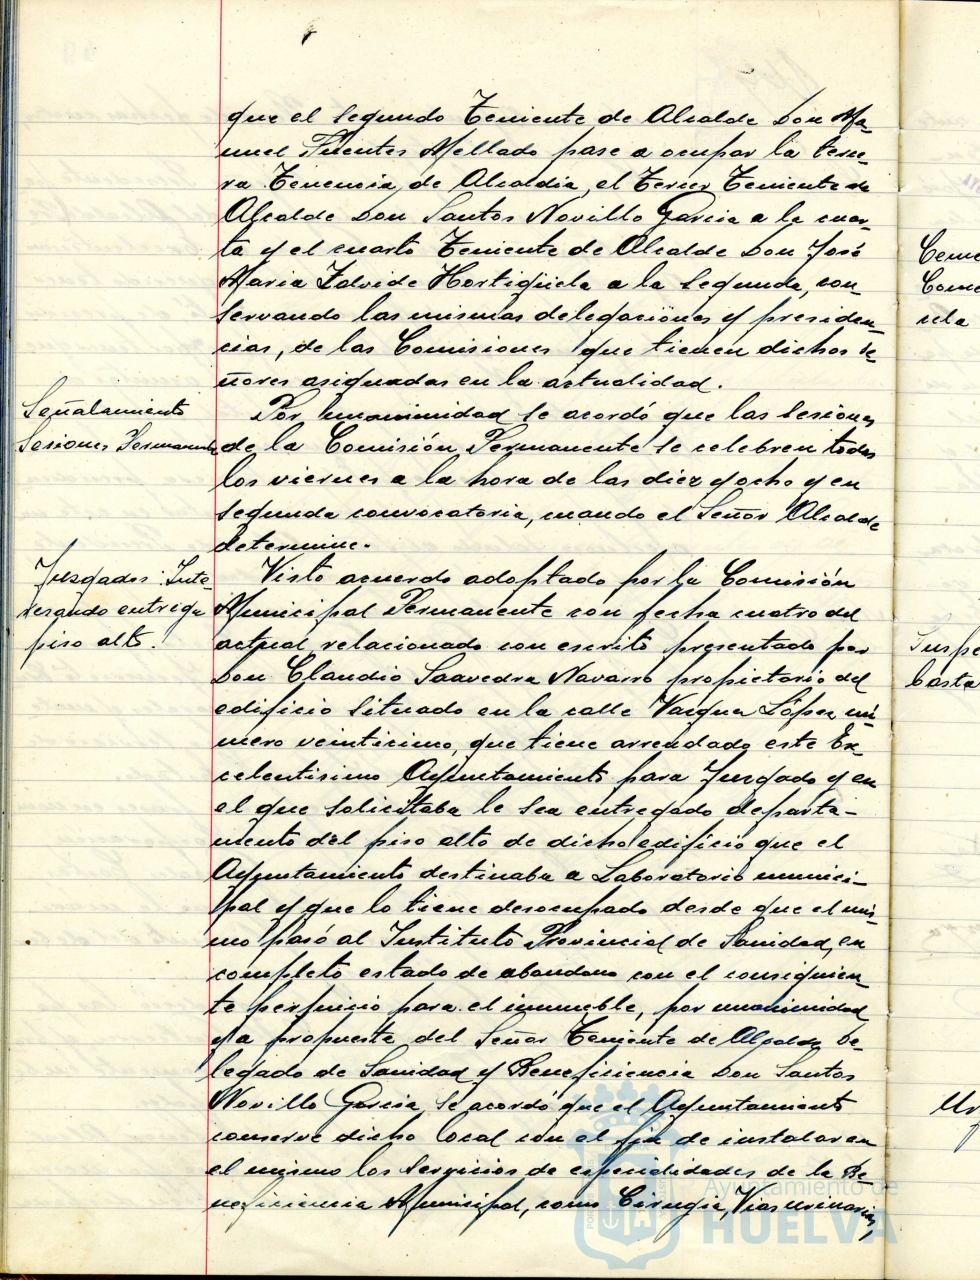 que el Segundo Teniente de Alcalde Don Ma-
nuel Fuentes Mellado pase a ocupar la terce-
ra Tenencia de Alcaldia, el Tercer Teniente de
Alcalde Don Santos Novillo Garcia a la cuar-
ta y el cuarto Teniente de Alcalde Don José
Maria Hortigüela a la Segunda, con-
servando las mismas delegaciones y presiden-
cias, de las Comisiones que tienen dichos Se-
ñores asignadas en la actualidad.
Señalamiento
Sesiones Permanente
Por unanimidad se acordó que las Sesiones
de la Comisión Permanente se celebren todos
los viernes a la hora de las diez y ocho y en
segunda convocatoria, cuando el Señor Alcalde
determine.
Juzgados: Inte-
resando entrega
piso alto.
Visto acuerdo adoptado por la Comisión
Municipal Permanente con fecha cuatro del
actual, relacionado con escrito presentado por
Don Claudio Saavedra Navarro propietario del
edificio situado en la calle Vazquez López nú-
mero veinticinco, que tiene arrendado este Ex-
celentisimo Ayuntamiento para Juzgado y en
el que solicitaba le sea entregado departa-
mento del piso alto de dicho edificio que el
Ayuntamiento destinaba a Laboratorio munici-
pal y que lo tiene desocupado desde que el mis-
mo pasó al Instituto Provincial de Sanidad, en
completo estado de abandono con el consiguien-
te perjuicio para el inmueble, por unanimidad
y a propuesta del Señor Teniente de Alcalde De-
legado de Sanidad y Beneficiencia Don Santos
Novillo Garcia, se acordó que el Ayuntamiento
conserve dicho local con el fin de instalar en
el mismo los Servicios de especialidades de la Be-
neficiencia Municipal, como Cirugia, Vias urinarias,
Ceme
Come
cela
Suspe
basta
Ayuntamiento de
HUELVA